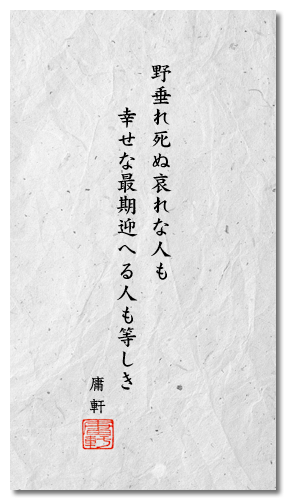 野垂れ死ぬ哀れな人も
幸せな最期迎へる人も等しき
庸軒
庸軒